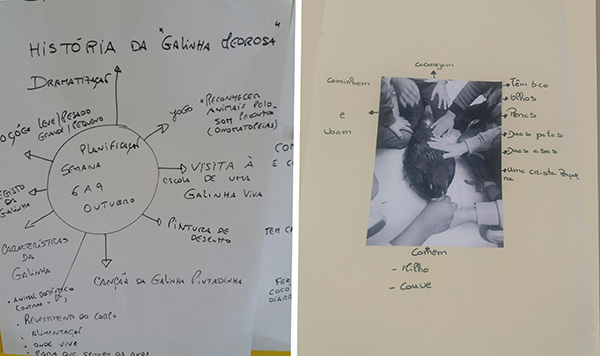 HISTÓRIA DA "GALINHA MEDROSA"
DRAMATIZAÇÃO
JOGO "RECONHECER
ANIMAIS PELO
SOM PRODUTO
(ONOMATOPEIAS)
NOÇÕES LEVE/PESADO
GRANDE/PEQUENO
Planificação
SEMANA
6 A 9
OUTUBRO
VISITA À
ESCOLA DE UMA
GALINHA VIVA
REGISTO DA
GALINHA
PINTURA DE
DESENHO
CARACTERÍSTICAS
DA
GALINHA
CANÇÃO DA GALINHA PINTADINHA
• ANIMAL DOMÉSTICO
• REVESTIMENTO DO CORPO
• ALIMENTAÇÃO
• ONDE VIVE
• PARA QUE SERVEM OS OVOS
TEM
COCO
Cacarejam
Caminham
e
Voam
Têm bico
olhos
Penas
Duas patas
Duas asas
Uma crista Peque
na
Comem
- Milho
- Couve